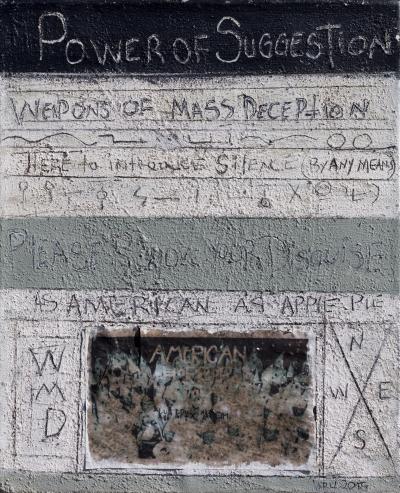 POWER OF SUGGESTION
WEAPONS OF MASS DECEPTION
HERE to introduce SILENCE (BY ANY MEANS)
PLEASE SHOW YOUR DISGUISE
AS AMERICAN AS APPLE PIE
AMERICAN
W
M
D
N
W E
S